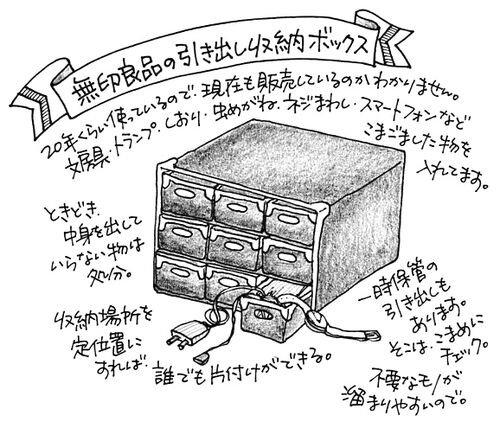 無印良品の引き出し収納ボックス
20年くらい使っているので、現在も販売しているのかわかりません。
文房具・トランプ・しおり・虫めがね・ネジまわし・スマートフォンなど
こまごました物を
入れてます。
ときどき、
中身を出して
いらない物は
処分。
収納場所を
定位置に
すれば、
誰でも片付けができる。
一時保管の
引き出しも
あります。
そこは、こまめに
チェック。
不要なモノが
溜まりやすいので。